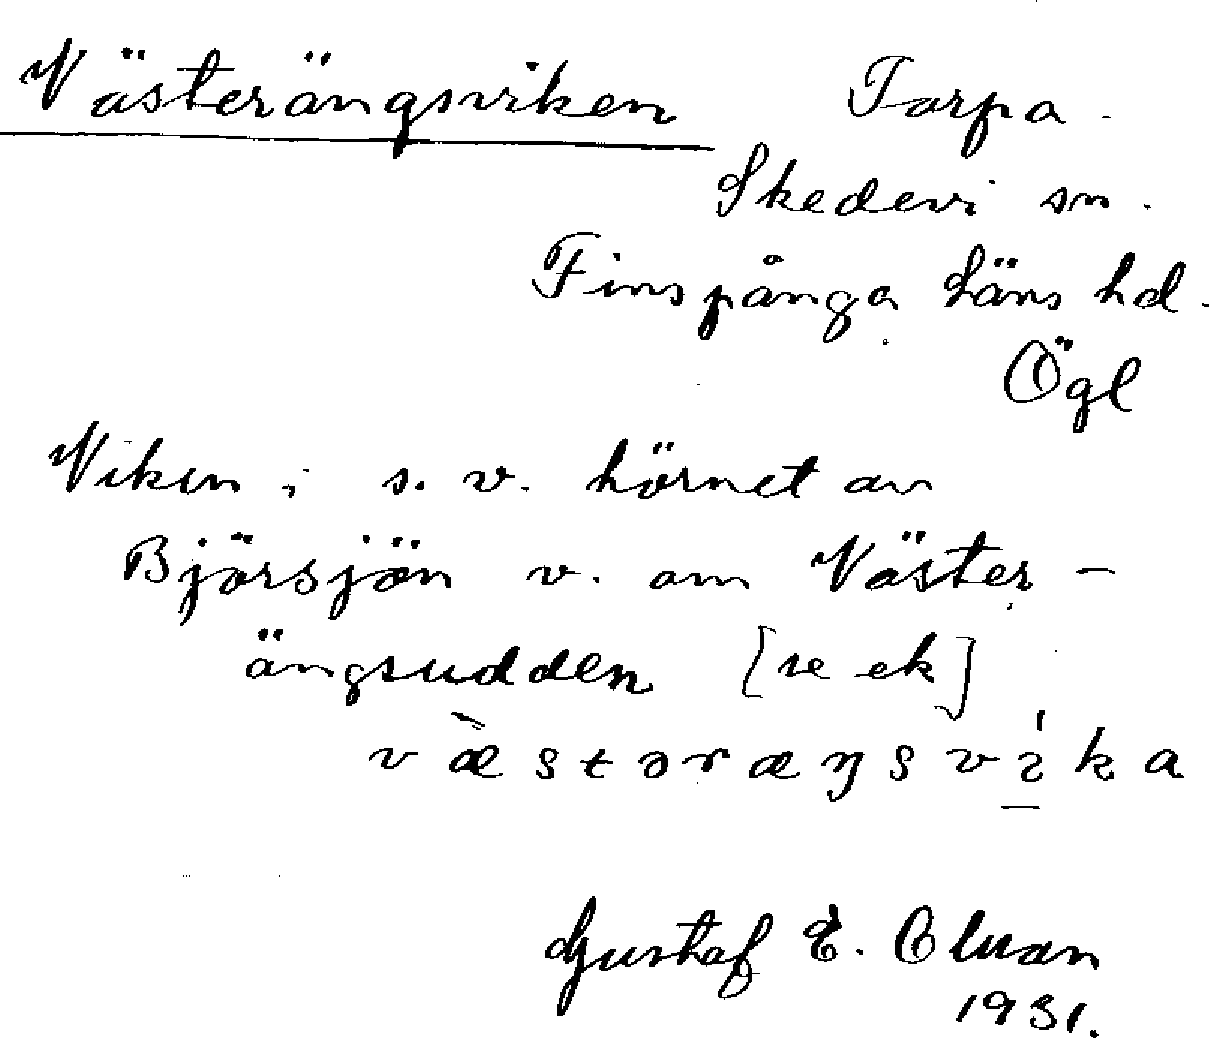 Västerängsviken Torpa.
Skedevi sn.
Finspånga läns hd.
Ögl
Viken i s. v. hörnet av
Björsjön v. om Väster-
ängsudden [se ek]
væstəræŋsvika
Gustaf E.
1931.